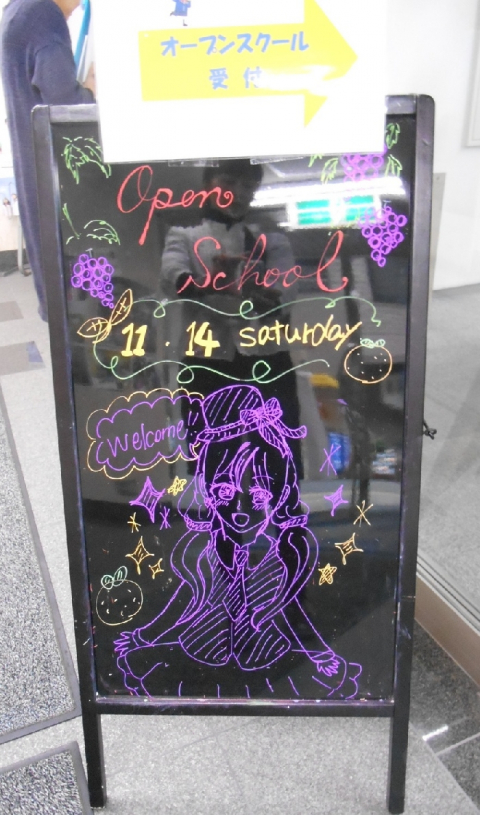 オープンスクール
受付
Open
School
11.14 saturday
Welcome!